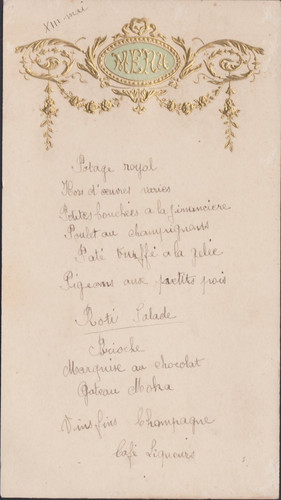 XIII mai
MENU
Potage royal
Hors d'œuvres variés
Petites bouchées a la financière
Poulet au champignons
Paté truffé a la gelée
Pigeons aux petits pois
Roti Salade
Brioche
Marquise au chocolat
Gateau Moka
Vins fins Champagne
Café Liqueurs